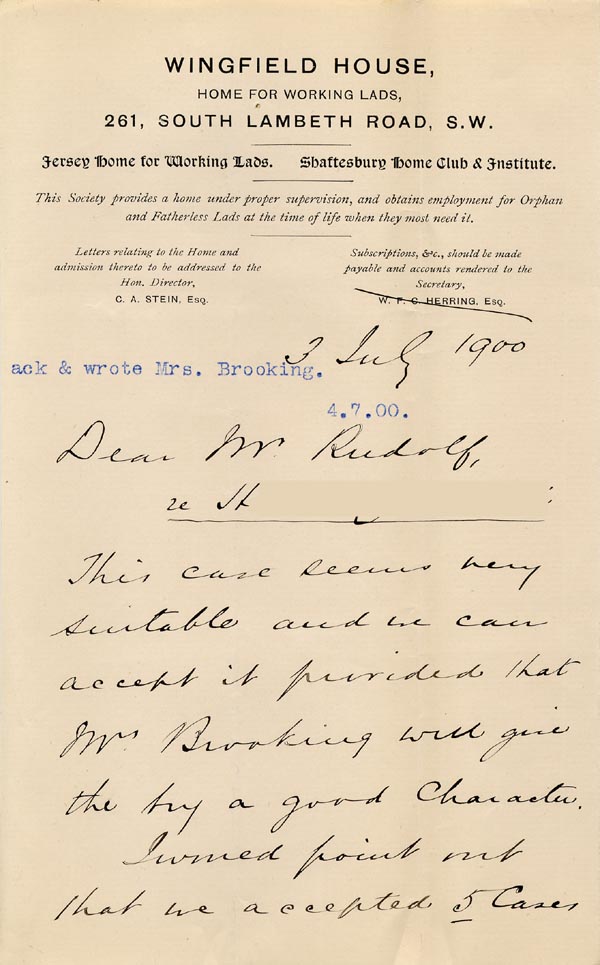 WINGFIELD HOUSE,
HOME FOR WORKING LADS,
261, SOUTH LAMBETH ROAD, S.W.
Jersey Home for Working Lads. Shaftesbury Home Club & Institute.
This Society provides a home under proper supervision, and obtains employment for Orphan
and Fatherless Lads at the time of life when they most need it.
Letters relating to the Home and
admission thereto to be addressed to the
Hon. Director,
C. A. STEIN, ESQ.
Subscriptions, &c., should be made
payable and accounts rendered to the
Secretary,
W. F. C. HERRING, ESQ.
3 July 1900
ack & wrote Mrs. Brooking.
4.7.00.
Dear Mr. Rudolf,
re H :
This case seems very
suitable and we can
accept it provided that
Mrs Brooking will give
the boy a good Character.
I would point out
that we accepted 5 Cases